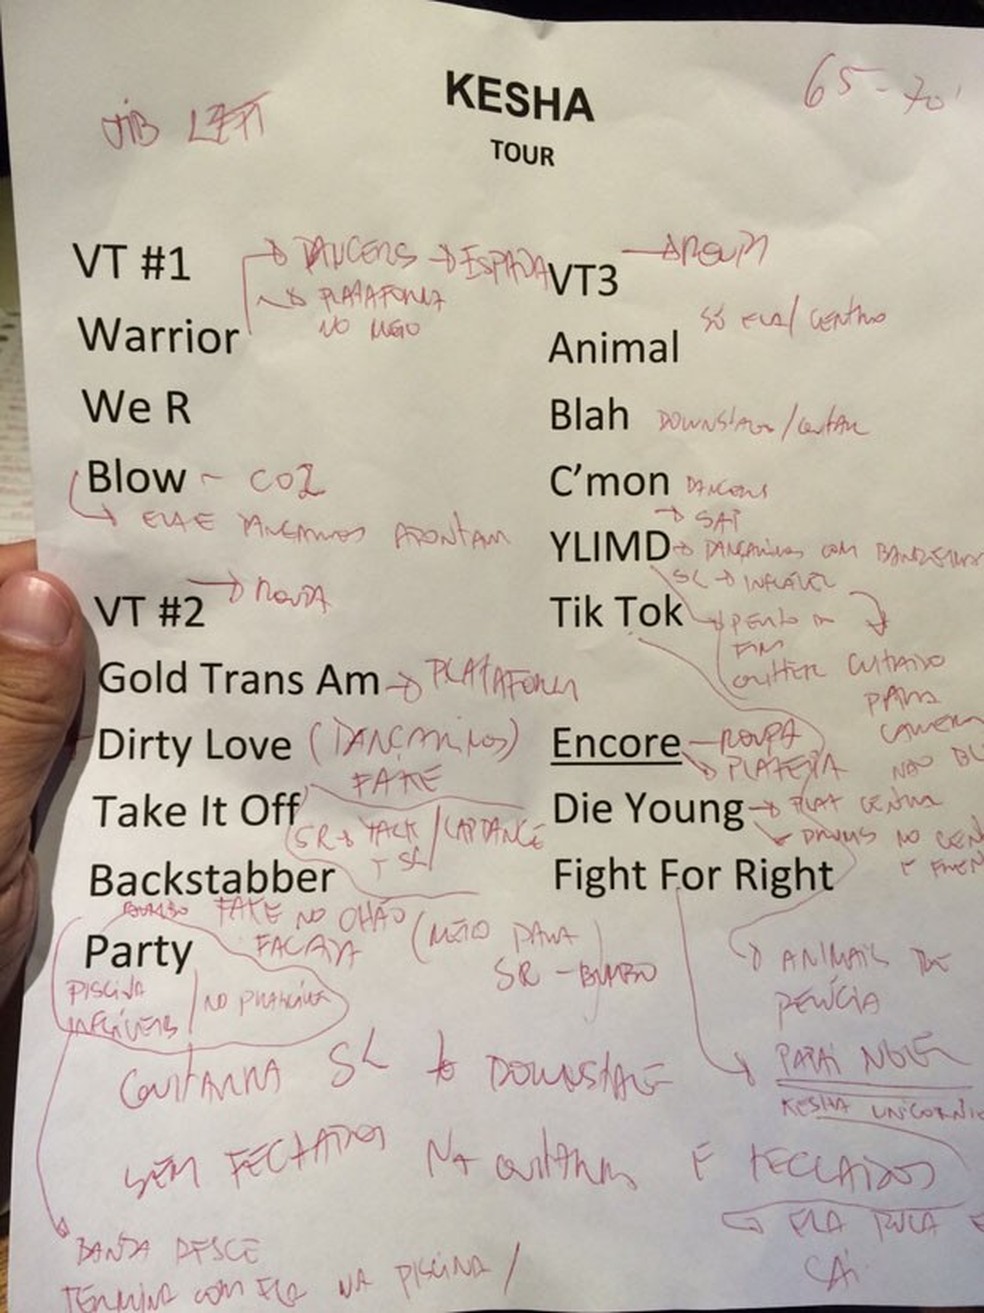 JIB LEFT
KESHA
65-70'
TOUR
VT #1
→ DANCERS → ESPADA
→ PLATAFORMA
NO MEIO
Warrior
We R
Blow - CO2
→ ELA E DANÇARINOS APONTAM
VT #2 → ROUPA
Gold Trans Am → PLATAFORMA
Dirty Love (DANÇARINOS)
FAKE
Take It Off
SR → /LAPDANCE
SL
Backstabber
BUMBO FAKE NO CHÃO (MEIO PARA
FACADA
SR - BUMBO
Party
PISCINA
INFLÁVEIS / NO
VT3 → ROUPA
Animal
SÓ ELA/ CENTRO
Blah DOWNSTAGE/
C'mon DANCERS
→ SAI
YLIMD → DANÇARINOS COM
SL → INFLÁVEL
Tik Tok → PERTO DO
FIM
PARA
NÃO
Encore - ROUPA
→ PLATEIA
Die Young → PLAT CENTRAL
→ DRUMS NO
Fight For Right
→ ANIMAIS DE
PELÚCIA
→ PAPAI NOEL
KESHA UNICÓRNIO
GUITARRA SL DOWNSTAGE
SEM TECLADOS
E TECLADOS
→ ELA PULA E
CAI
BANDA DESCE
TERMINA COM ELA NA PISCINA /